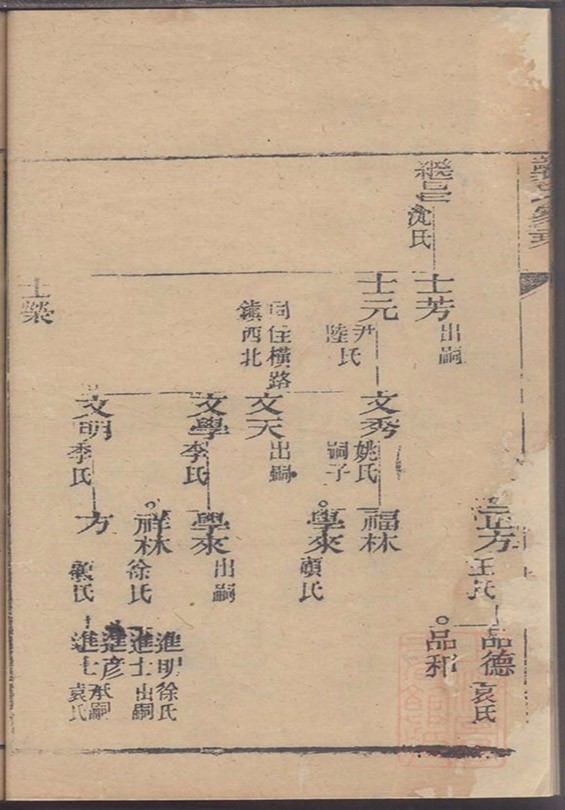 繼昌
沈氏
士芳
出嗣
士元
尹氏
陸氏
同住橫路
鎮西北
士榮
文秀
姚氏
嗣子
文天
出嗣
文學
李氏
文明
季氏
正方
王氏
福林
學來
顧氏
學來
出嗣
祥林
徐氏
方
氏
品德
袁氏
品和
進明
徐氏
進士
出嗣
進彥
承嗣
進士
袁氏